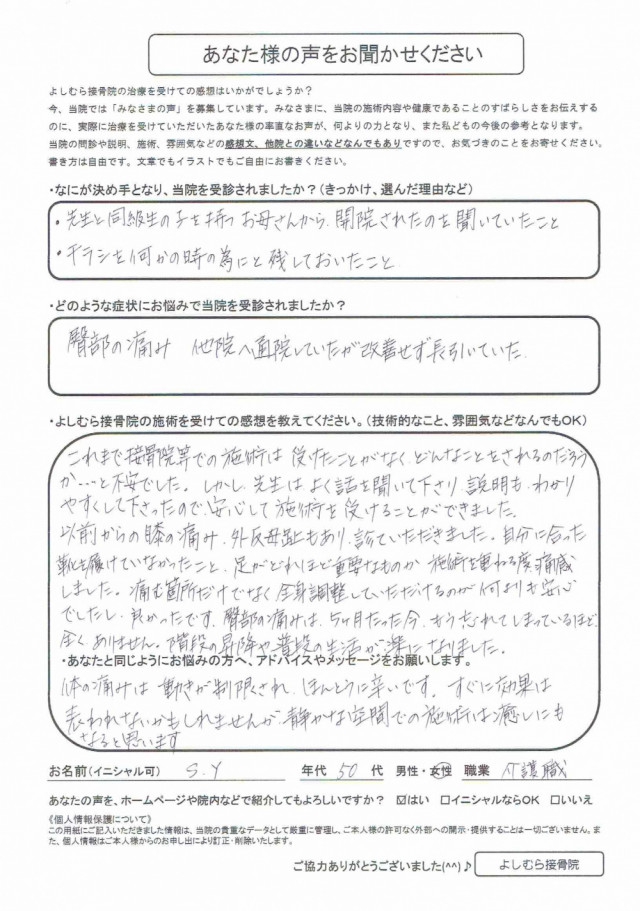 あなた様の声をお聞かせください
よしむら接骨院の治療を受けての感想はいかがでしょうか？
今、当院では「みなさまの声」を募集しています。みなさまに、当院の施術内容や健康であることのすばらしさをお伝えする
のに、実際に治療を受けていただいたあなた様の率直なお声が、何よりの力となり、また私どもの今後の参考となります。
当院の問診や説明、施術、雰囲気などの感想文、他院との違いなどなんでもありですので、お気づきのことをお寄せください。
書き方は自由です。文章でもイラストでもご自由にお書きください。
・なにが決め手となり、当院を受診されましたか？(きっかけ、選んだ理由など)
・先生と同級生の子を持つお母さんから、開院されたのを聞いていたこと
・チラシを何かの時の為にと残しておいたこと
・どのような症状にお悩みで当院を受診されましたか？
臀部の痛み 他院へ通院していたが改善せず長引いていた
・よしむら接骨院の施術を受けての感想を教えてください。(技術的なこと、雰囲気などなんでもOK)
これまで接骨院等での施術は受けたことがなくどんなことをされるのだろう
か…と不安でした。しかし、先生はよく話を聞いて下さり、説明もわかり
やすくして下さったので、安心して施術を受けることができました。
以前からの膝の痛み、外反母趾もあり、診ていただきました。自分に合った
靴を履けていなかったこと、足がどれほど重要なものか施術を重ねる度、痛感
しました。痛む箇所だけでなく全身調整していただけるのが何よりも安心
でしたし、良かったです。臀部の痛みは、5ヶ月たった今、もう忘れてしまっているほど
全くありません。階段の昇降や普段の生活が楽になりました。
・あなたと同じようにお悩みの方へ、アドバイスやメッセージをお願いします。
体の痛みは動きが制限され、ほんとうに辛いです。すぐに効果は
表われないかもしれませんが静かな空間での施術は癒しにも
なると思います
お名前(イニシャル可) S.Y 年代 50 代 男性・女性 職業 介護職
あなたの声を、ホームページや院内などで紹介してもよろしいですか？ ☑はい □イニシャルならOK □いいえ
《個人情報保護について》
この用紙にご記入いただきました情報は、当院の貴重なデータとして厳重に管理し、ご本人様の許可なく外部への開示・提供することは一切ございません。ま
た、個人情報はご本人様からのお申し出により訂正・削除いたします。
ご協力ありがとうございました(^^)♪ よしむら接骨院